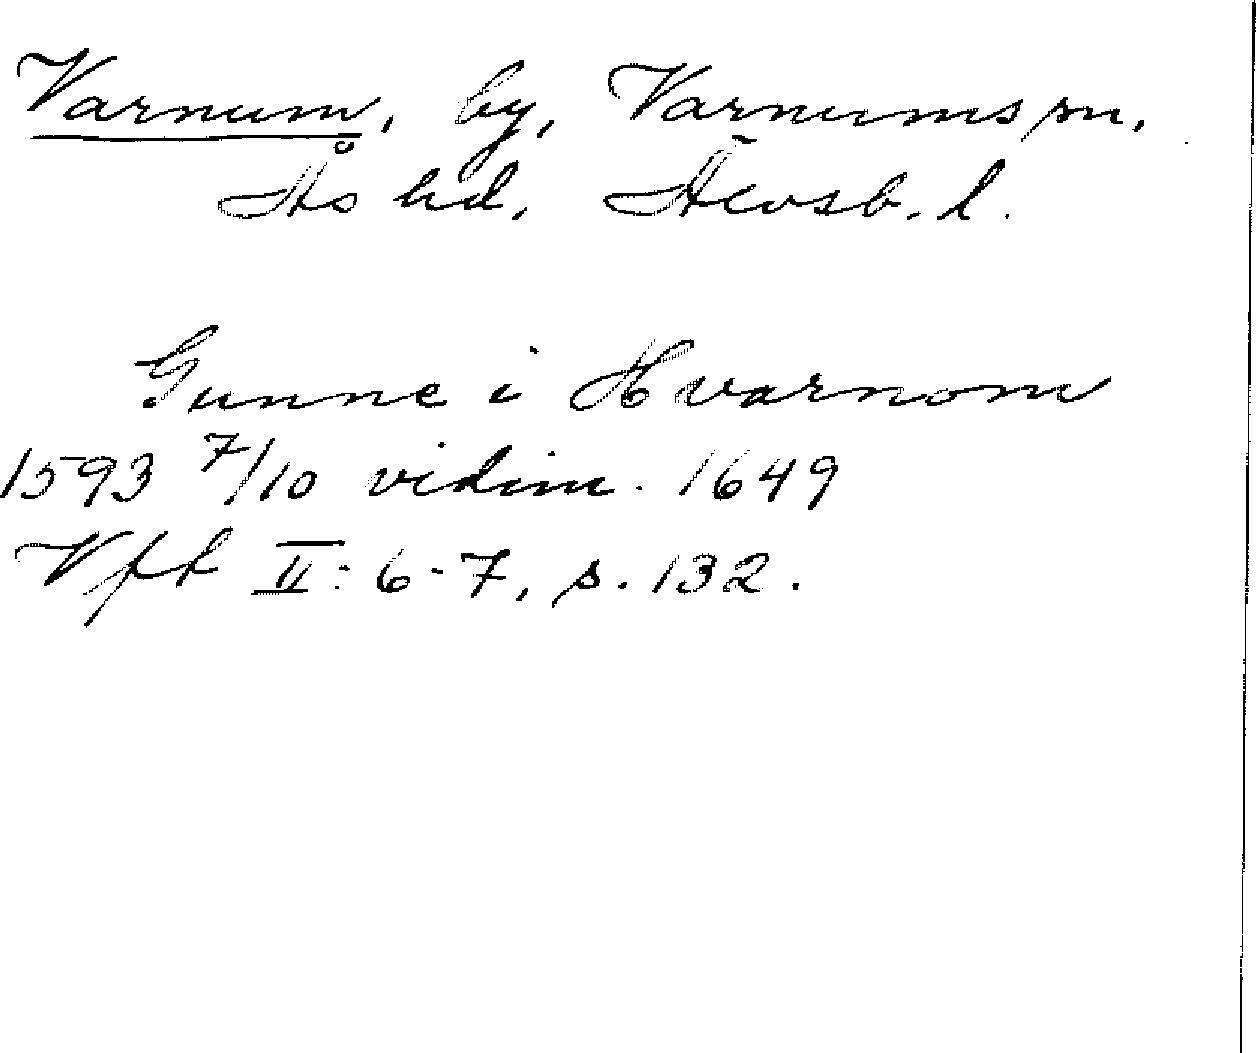 Varnum, by, Varnums sn.
Ås hd. Älvsb. l.
Gunne i Hvarnom
1593 7/10 vidim. 1649
Vft II: 6-7, s. 132.